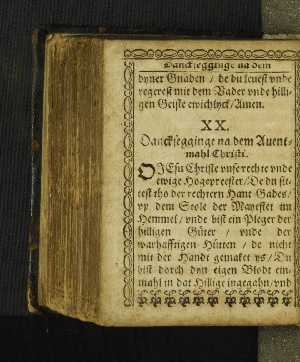 Danckſegginge na dem
dyner Gnaden / de du leueſt vnde
regereſt mit dem Vader vnde hilli-
gen Geiſte ewichlyck / Amen.
XX.
Danckſegginge na dem Auent-
mahl Chriſti.
OJEſu Chriſte vnſe rechte vnde
ewige Hogepreeſter / De du ſit-
teſt tho der rechtern Hant Gades /
vp dem Stole der Mayeſtet im
Hemmel / vnde biſt ein Pleger der
hilligen Güter / vnde der
warhafftigen Hütten / de nicht
mit der Handt gemaket ys / Du
biſt dorch dyn eigen Blodt ein-
mahl in dat Hillige ingegahn / vnd